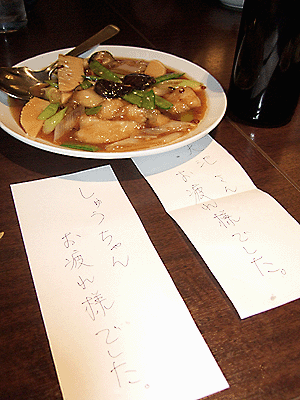 しゅうちゃん
お疲れ様でした。
お疲れ様でした。